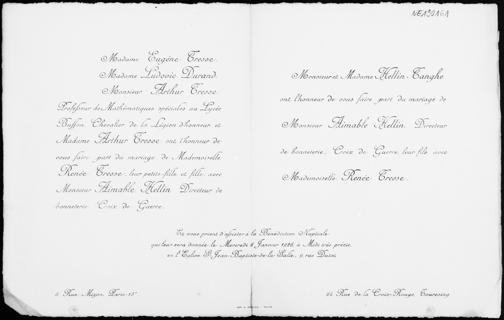 NE120161
Madame Eugène Tresse.
Madame Ludovic Durand.
Monsieur Arthur Tresse.
Professeur de Mathématiques spéciales au Lycée
Buffon Chevalier de la Légion d'honneur et
Madame Arthur Tresse ont l'honneur de
vous faire part du mariage de Mademoiselle
Renée Tresse, leur petite-fille et fille, avec
Monsieur Aimable Hellin Directeur de
bonneterie Croix de Guerre.
Monsieur et Madame Hellin-Tanghe
ont l'honneur de vous faire part du mariage de
Monsieur Aimable Hellin, Directeur
de bonneterie, Croix de Guerre, leur fils avec
Mademoiselle Renée Tresse.
Et vous prient d'assister à la Bénédiction Nuptiale
qui leur sera donnée le Mercredi 6 Janvier 1926, à Midi très précis,
en l'Eglise St Jean-Baptiste-de-la-Salle, 9, rue Dutot.
6 Rue Mizon, Paris-15e
24 Rue de la Croix-Rouge, Tourcoing